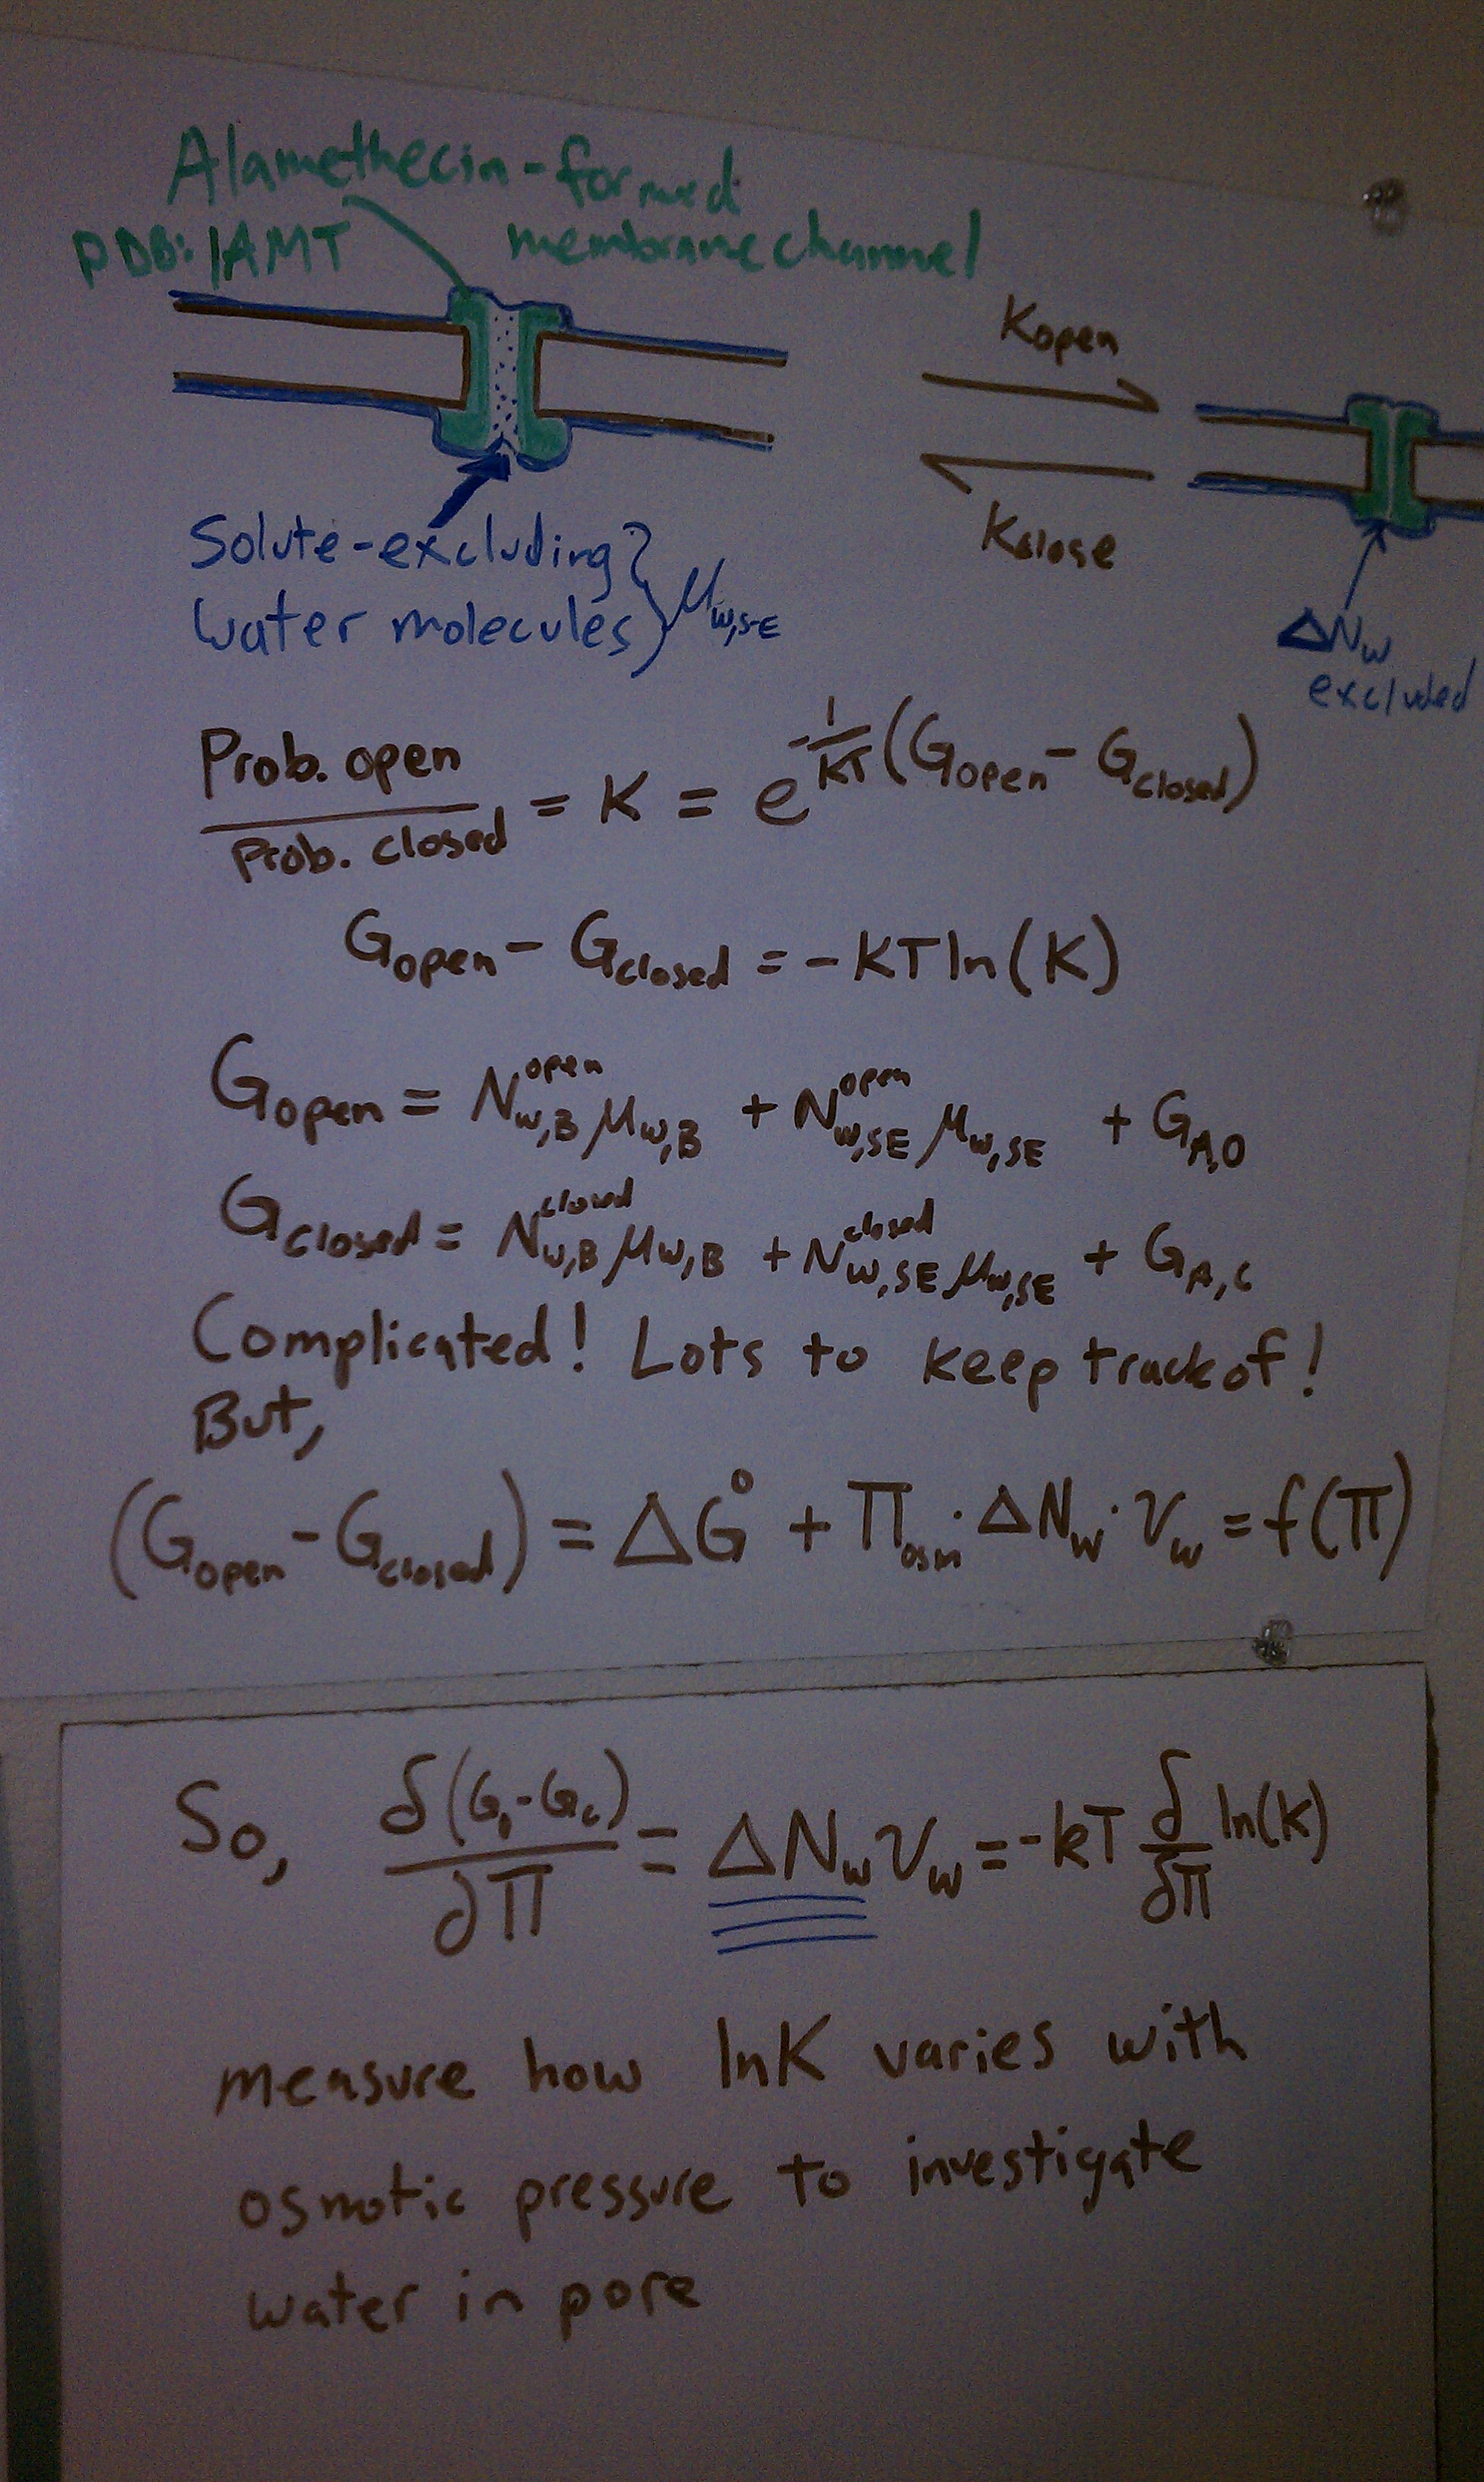 Alamethecin-formed
PDB: 1AMT membrane channel
Kopen
Kclose
Solute-excluding
water molecules } μw,SE
ΔNw
excluded
Prob. open / Prob. closed = K = e^-1/kT (Gopen - Gclosed)
Gopen - Gclosed = -kT ln(K)
Gopen = N^open w,B μw,B + N^open w,SE μw,SE + GA,O
Gclosed = N^closed w,B μw,B + N^closed w,SE μw,SE + GA,C
Complicated! Lots to keep track of!
But,
(Gopen - Gclosed) = ΔG° + Πosm · ΔNw · Vw = f(Π)
So, ∂(Go-Gc) / ∂Π = ΔNw Vw = -kT ∂/∂Π ln(K)
measure how lnK varies with
osmotic pressure to investigate
water in pore